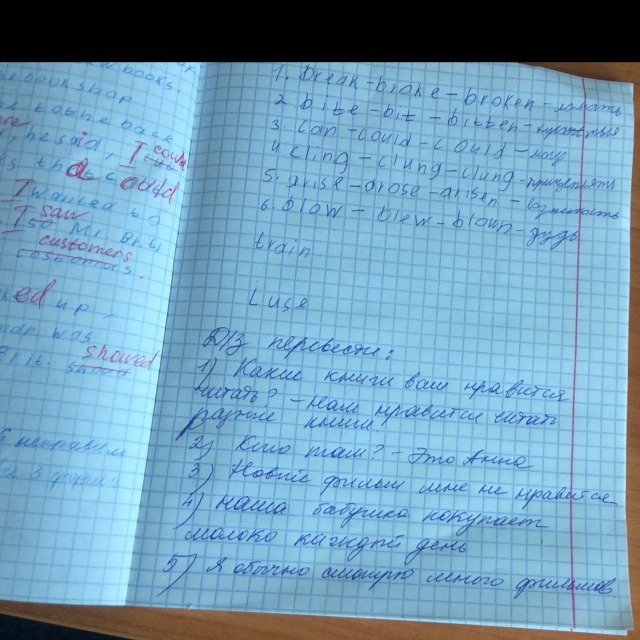 books.
bookshop
to the back
he said, I could
that could
I wanted to
I saw Mr. Br
customers
ed up.
man was
showed
1. Break - broke - broken - ломать
2 bite - bit - bitten -
3. can - could - could - могу
4 cling - clung - clung - прицеплять
5. arise - arose - arisen - возникать
6. blow - blew - blown - дуть
train
Luse
Д/З перевести:
1) Какие книги вам нравится
читать? - Нам нравится читать
разные книги
2) Кто там? - Это Анна
3) Новый фильм мне не нравится
4) наша бабушка покупает
молоко каждый день
5) Я обычно смотрю много фильмов